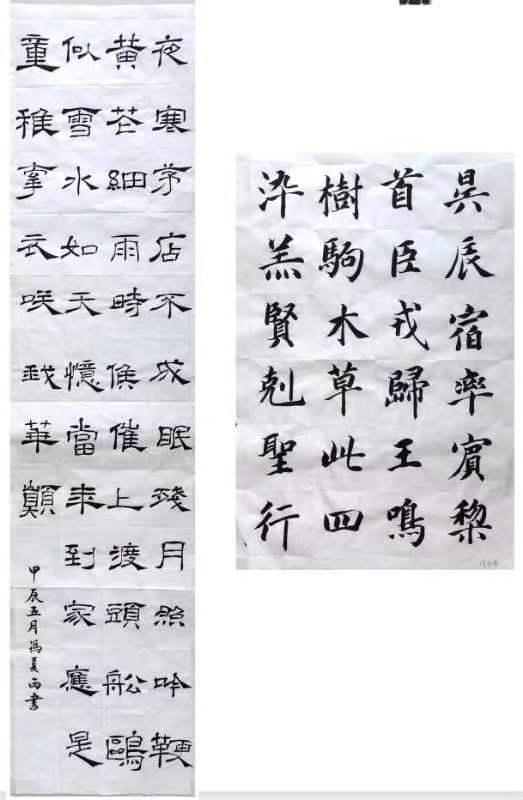 夜寒茅店不成眠殘月照吟鞭
黄花細雨時候催上渡頭船鷗
似雪水如天憶當年到家應是
童稚牽衣咲我華顛
甲辰五月馮夏雨書
昃辰宿率賓黎
首臣戎歸王鳴
樹駒木草此四
染羔賢剋聖行